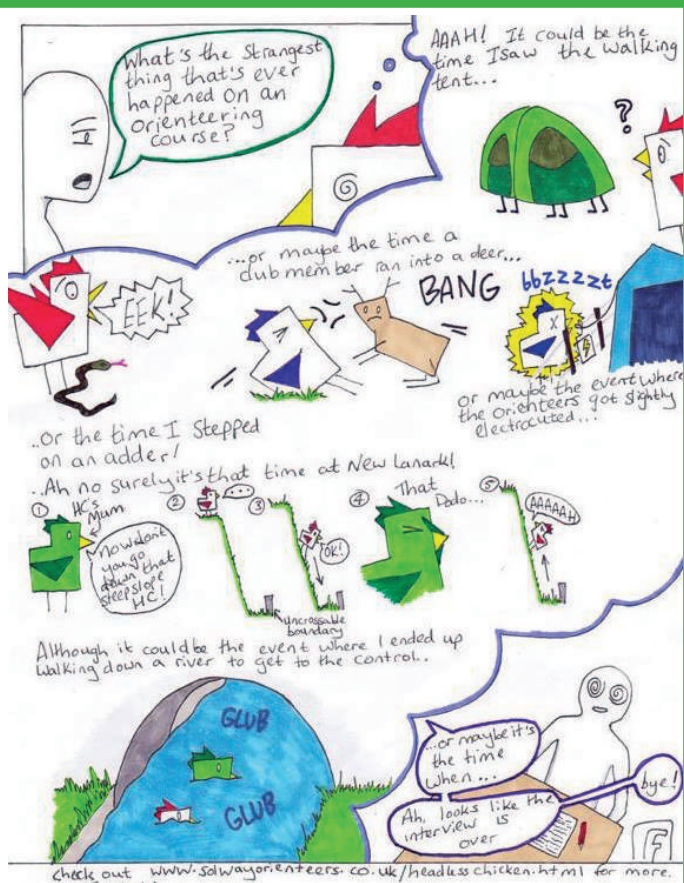 What's the strangest
thing that's ever
happened on an
orienteering
course?
AAAH! It could be the
time I saw the walking
tent...
?
...or maybe the time a
club member ran into a deer...
EEK!
BANG
bbzzzzt
or maybe the event where
the orienteers got slightly
electrocuted...
..or the time I stepped
on an adder!
..Ah no surely it's that time at New Lanark!
1
HC's
Mum
now don't
you go
down that
steep slope
HC!
2
...
3
OK!
uncrossable
boundary
4
That
Dodo...
5
AAAAAH
Although it could be the event where I ended up
walking down a river to get to the control..
GLUB
GLUB
...or maybe it's
the time
when...
Ah, looks like the
interview is
over
bye!
F
check out www.solwayorienteers.co.uk/headlesschicken.html for more.